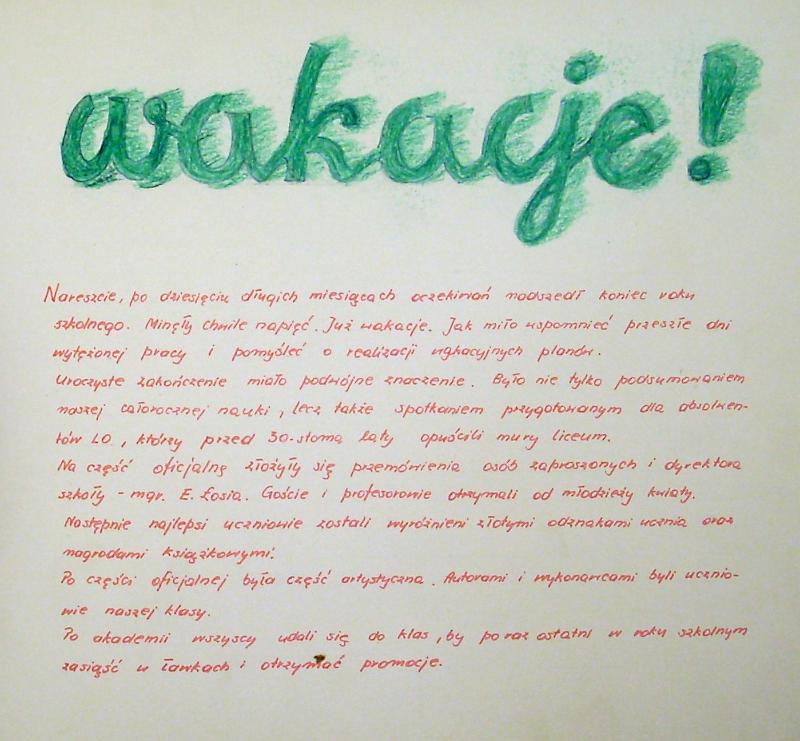 wakacje!
Nareszcie, po dziesięciu długich miesiącach oczekiwań nadszedł koniec roku
szkolnego. Minęły chwile napięć. Już wakacje. Jak miło wspomnieć przeszłe dni
wytężonej pracy i pomyśleć o realizacji wakacyjnych planów.
Uroczyste zakończenie miało podwójne znaczenie. Było nie tylko podsumowaniem
naszej całorocznej nauki, lecz także spotkaniem przygotowanym dla absolwen-
tów LO, którzy przed 30-stoma laty opuścili mury liceum.
Na część oficjalną złożyły się przemówienia osób zaproszonych i dyrektora
szkoły - mgr. E. Łosia. Goście i profesorowie otrzymali od młodzieży kwiaty.
Następnie najlepsi uczniowie zostali wyróżnieni złotymi odznakami ucznia oraz
nagrodami książkowymi.
Po części oficjalnej była część artystyczna. Autorami i wykonawcami byli ucznio-
wie naszej klasy.
Po akademii wszyscy udali się do klas, by po raz ostatni w roku szkolnym
zasiąść w ławkach i otrzymać promocje.